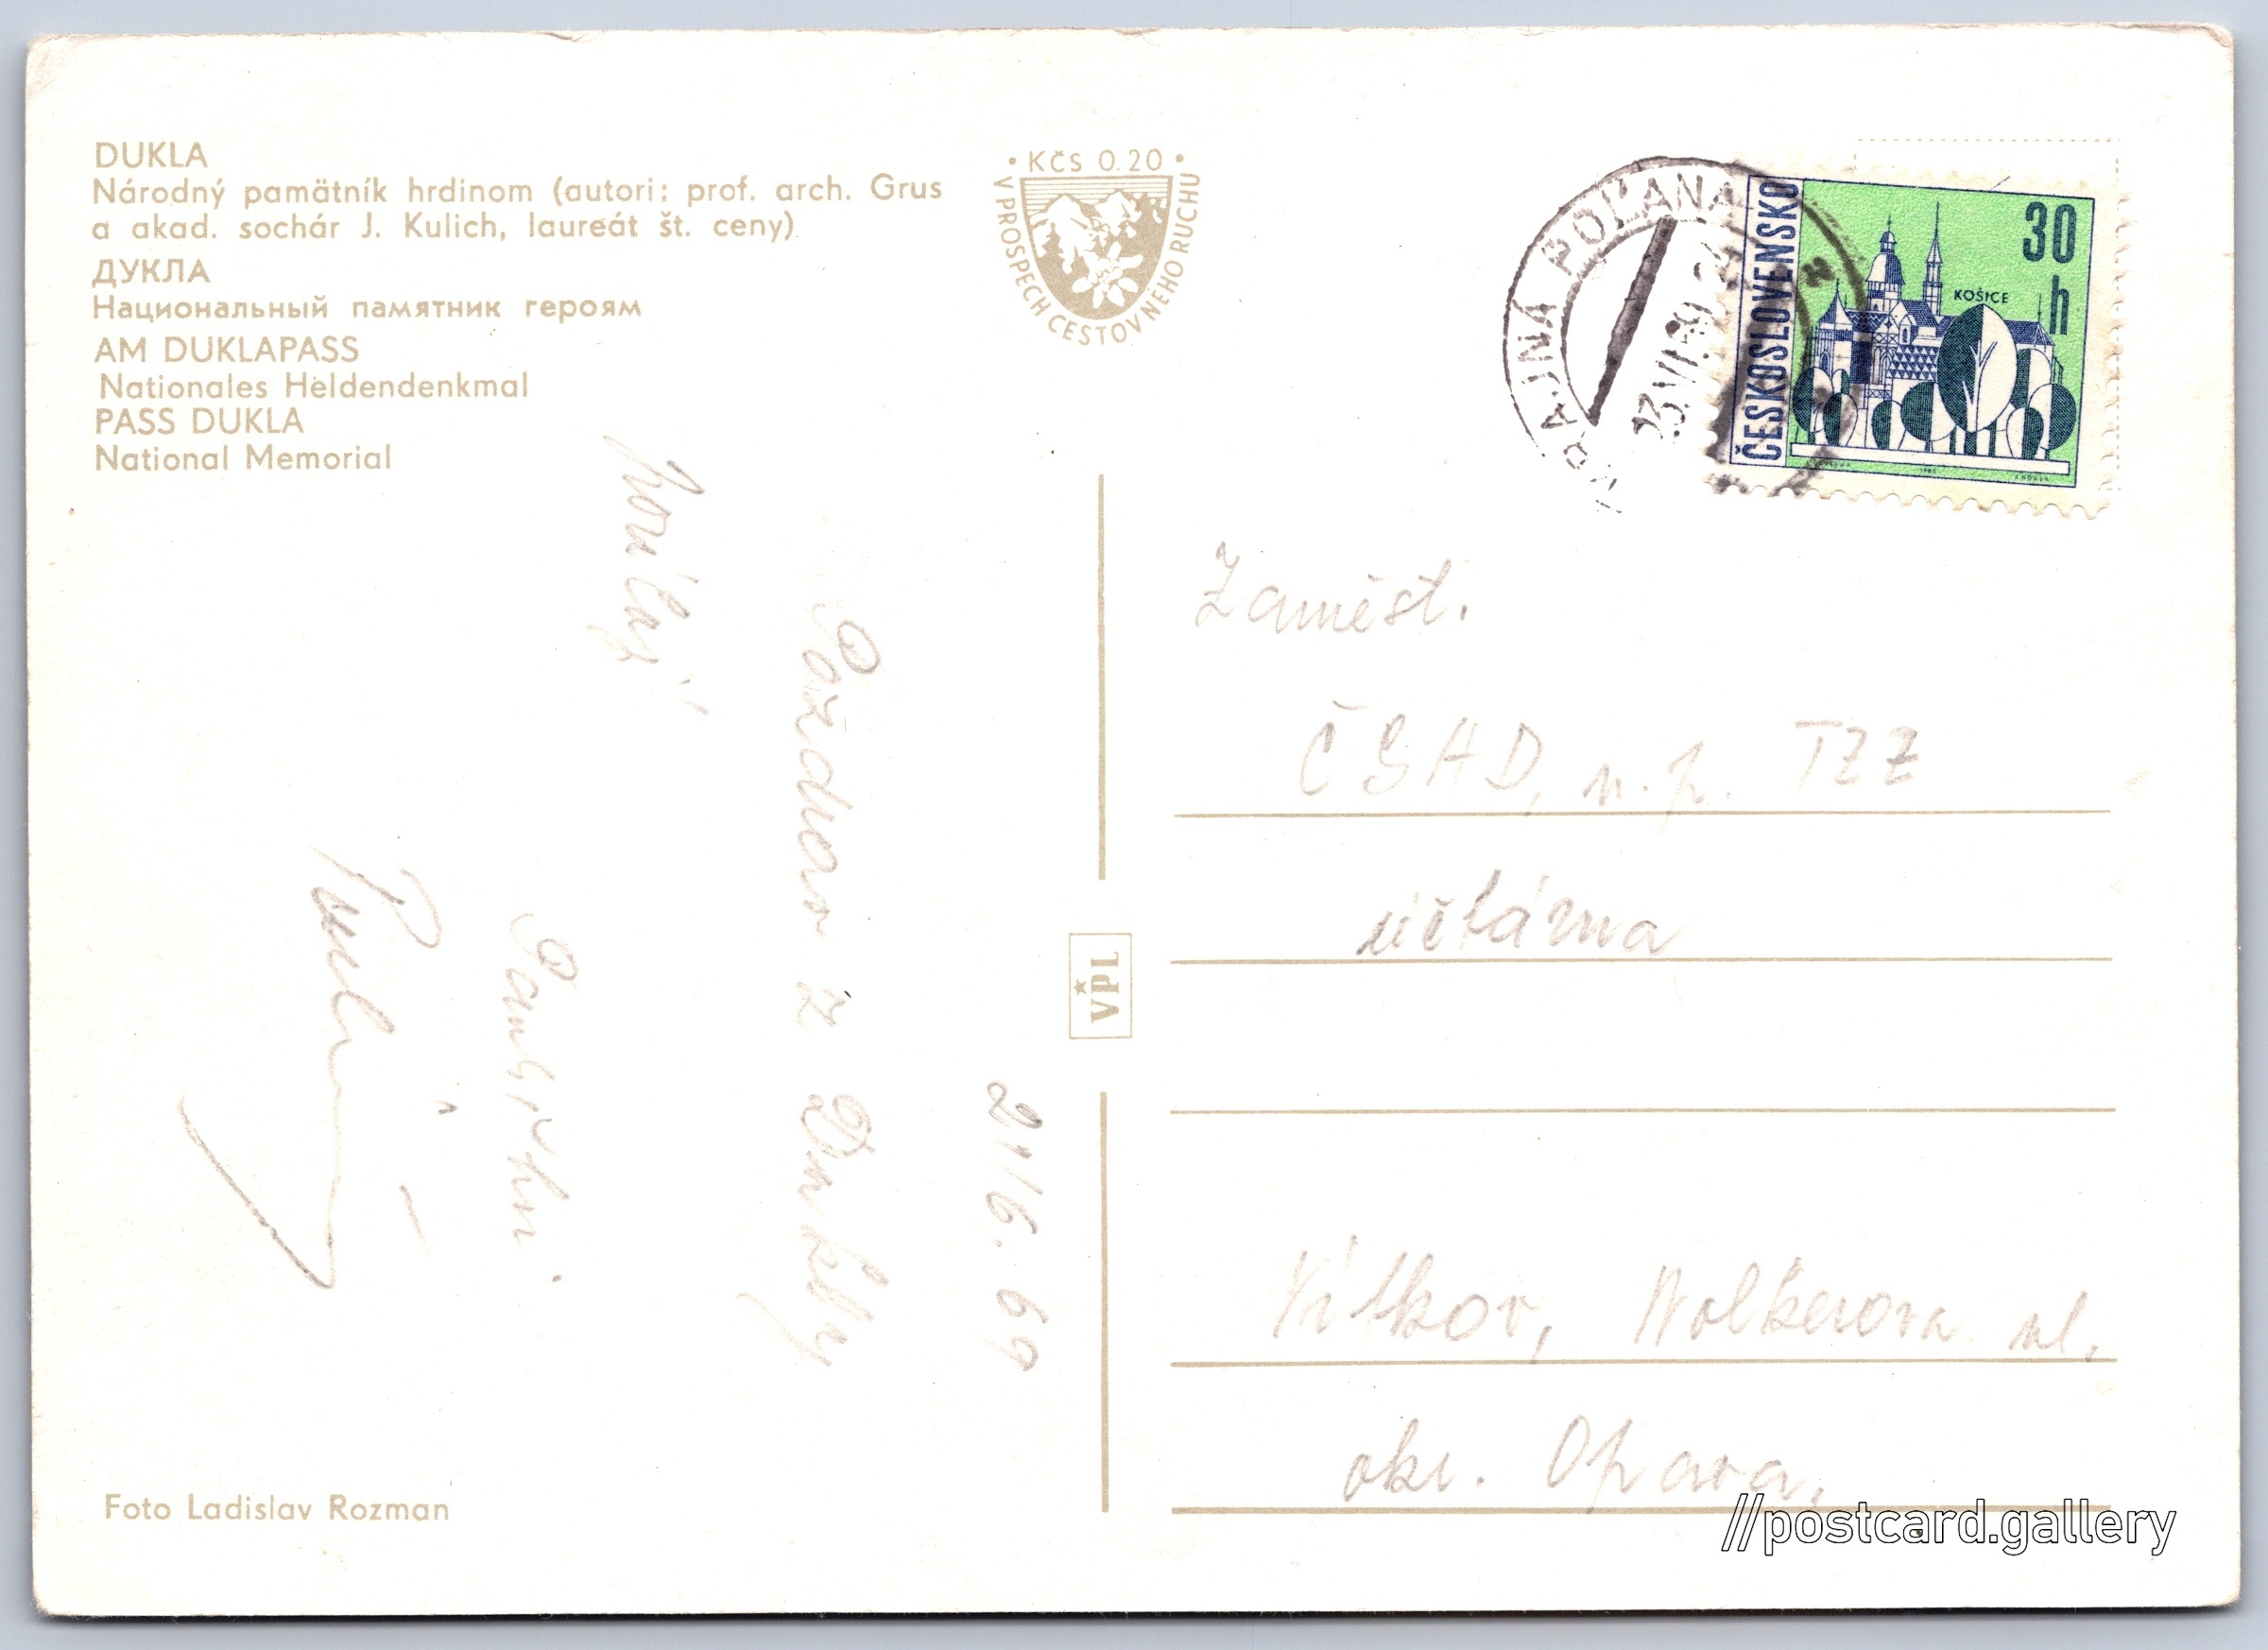 DUKLA
Národný pamätník hrdinom (autori: prof. arch. Grus
a akad. sochár J. Kulich, laureát št. ceny)
ДУКЛА
Национальный памятник героям
AM DUKLAPASS
Nationales Heldendenkmal
PASS DUKLA
National Memorial
• KČS 0.20 •
V PROSPECH CESTOVNÉHO RUCHU
KRAJNÁ POĽANA
23.VI.69
ČESKOSLOVENSKO
30
h
KOŠICE
21/6. 69
Pozdrav z Dukly
VPL
Zaměst.
ČSAD, n.p. TZZ
účtárna
Vítkov, Wolkerova ul.
okr. Opava.
Foto Ladislav Rozman
//postcard.gallery